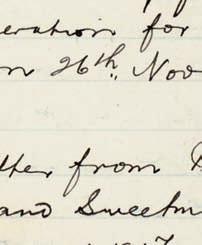 eration for
n 26th. Nov
tter from
and Sweetm